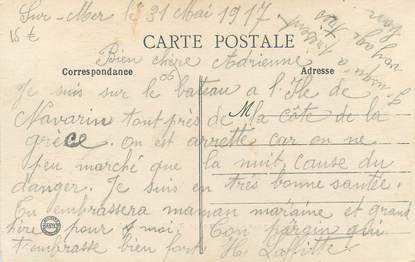 Sur-Mer le 31 Mai 1917
15 €
CARTE POSTALE
Bien chère Adrienne
Correspondance
Adresse
Je suis sur le bateau a l'Ile de
Navarin tout près de la côte de la
grèce. On est arretté car on ne
peu marché que la nuit cause du
danger. Je suis en très bonne santée.
Tu embrassera maman maraine et grand
père pour moi. Ton parain qui
t'embrasse bien fort H. Laffitte
bon voyage